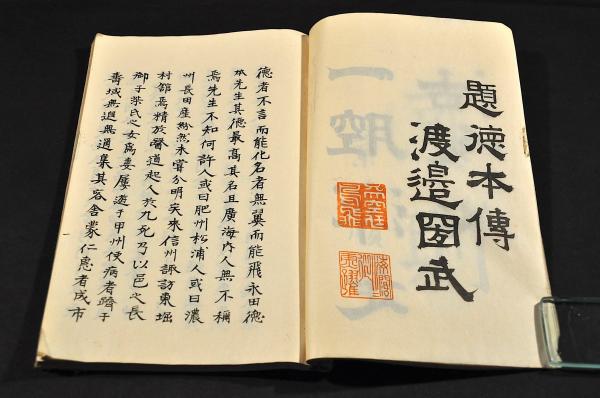 題德本傳
渡邉國武
德者不言而能化名者無翼而能飛永田德
本先生其德最高其名且廣海内人無不稱
焉先生不知何許人或曰肥州松浦人或曰濃
州長田産紛然未嘗分明矣来信州諏訪東堀
村都焉精於醫道起人於九死乃以邑之長
御子柴氏之女爲妻屡遊于甲州使病者躋于
壽域無遐無邇集其客舎蒙仁惠者成市